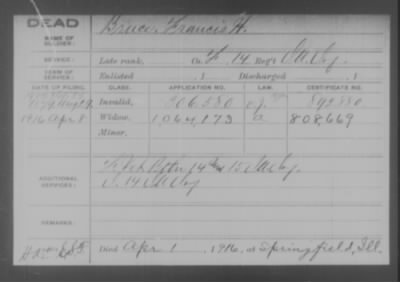 DEAD
NAME OF SOLDIER: Bruce, Francis H.
SERVICE: Late rank, Co. F, 14 Reg't Ill. Cav.
TERM OF SERVICE: Enlisted 1 Discharged 1
DATE OF FILING. CLASS. APPLICATION NO. LAW. CERTIFICATE NO.
Invalid, 306,580 892880
1916 Apr 8 Widow, 1,064,173 a. 808,669
Minor,
ADDITIONAL SERVICES: 14 15 Ill. Cav.
14 Ill Cav
REMARKS:
Died Apr 1, 1916, at Springfield, Ill.